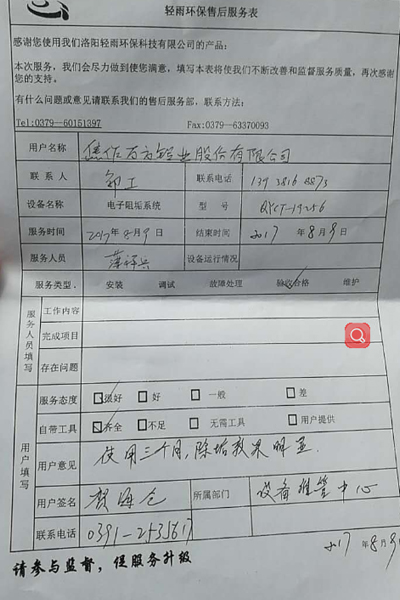 轻雨环保售后服务表
感谢您使用我们洛阳轻雨环保科技有限公司的产品:
本次服务,我们会尽力做到使您满意,填写本表将使我们不断改善和监督服务质量,再次感谢
您的支持。
有什么问题或意见请联系我们的售后服务部,联系方法:
Tel:0379—60151397 Fax:0379—63370093
用户名称 焦作万方铝业股份有限公司
联系人 联系电话
设备名称 电子阻垢系统 型号
服务时间 2017年8月9日 结束时间 2017 8月9日
服务人员 设备运行情况
服务类型. 安装 调试 故障处理 验收合格 维护
服务人员填写
工作内容
完成项目
存在问题
用户填写
服务态度 很好 好 一般 差
自带工具 齐全 不足 无需工具 用户提供
用户意见 使用三个月,除垢效果明显.
用户签名 所属部门 设备推管中心
联系电话 0391-2535617
2017年8月9
请参与监督,促服务升级